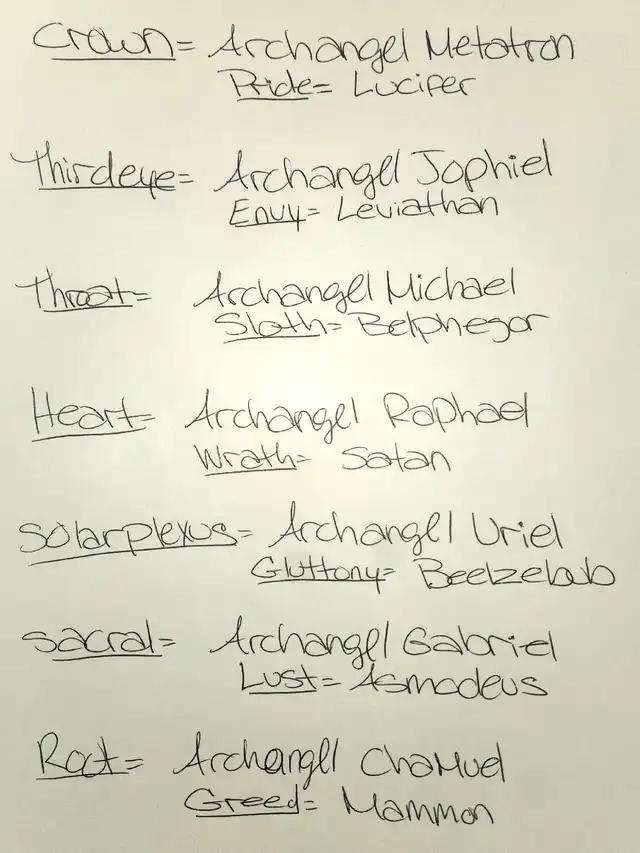 Crown= Archangel Metatron
Pride= Lucifer
Thirdeye= Archangel Jophiel
Envy= Leviathan
Throat= Archangel Michael
Sloth= Belphegor
Heart= Archangel Raphael
Wrath= Satan
Solarplexus= Archangel Uriel
Gluttony= Beelzebub
Sacral= Archangel Gabriel
Lust= Asmodeus
Root= Archangel Chamuel
Greed= Mammon